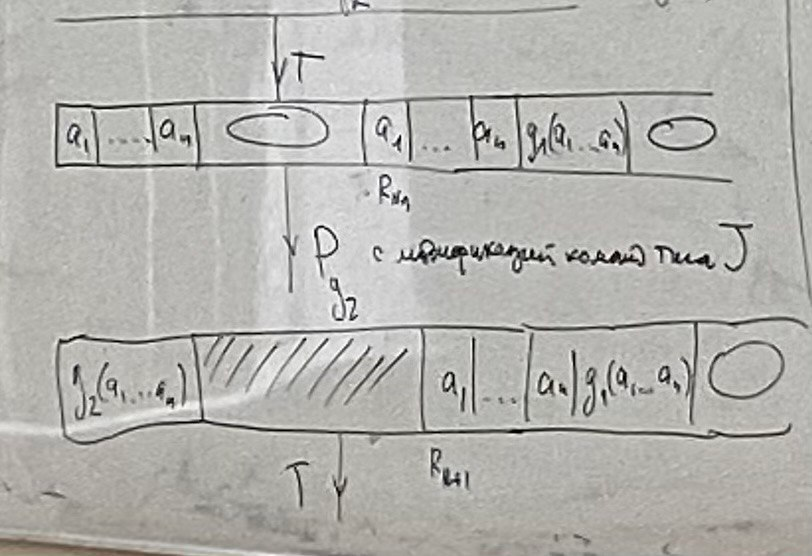 T
a₁ .... aₙ 0 a₁ ... aₙ g₁(a₁...aₙ) 0
R_N+1
P_g₂ с модификацией команд типа J
g₂(a₁...aₙ) a₁ .... aₙ g₁(a₁...aₙ) 0
T R_N+1